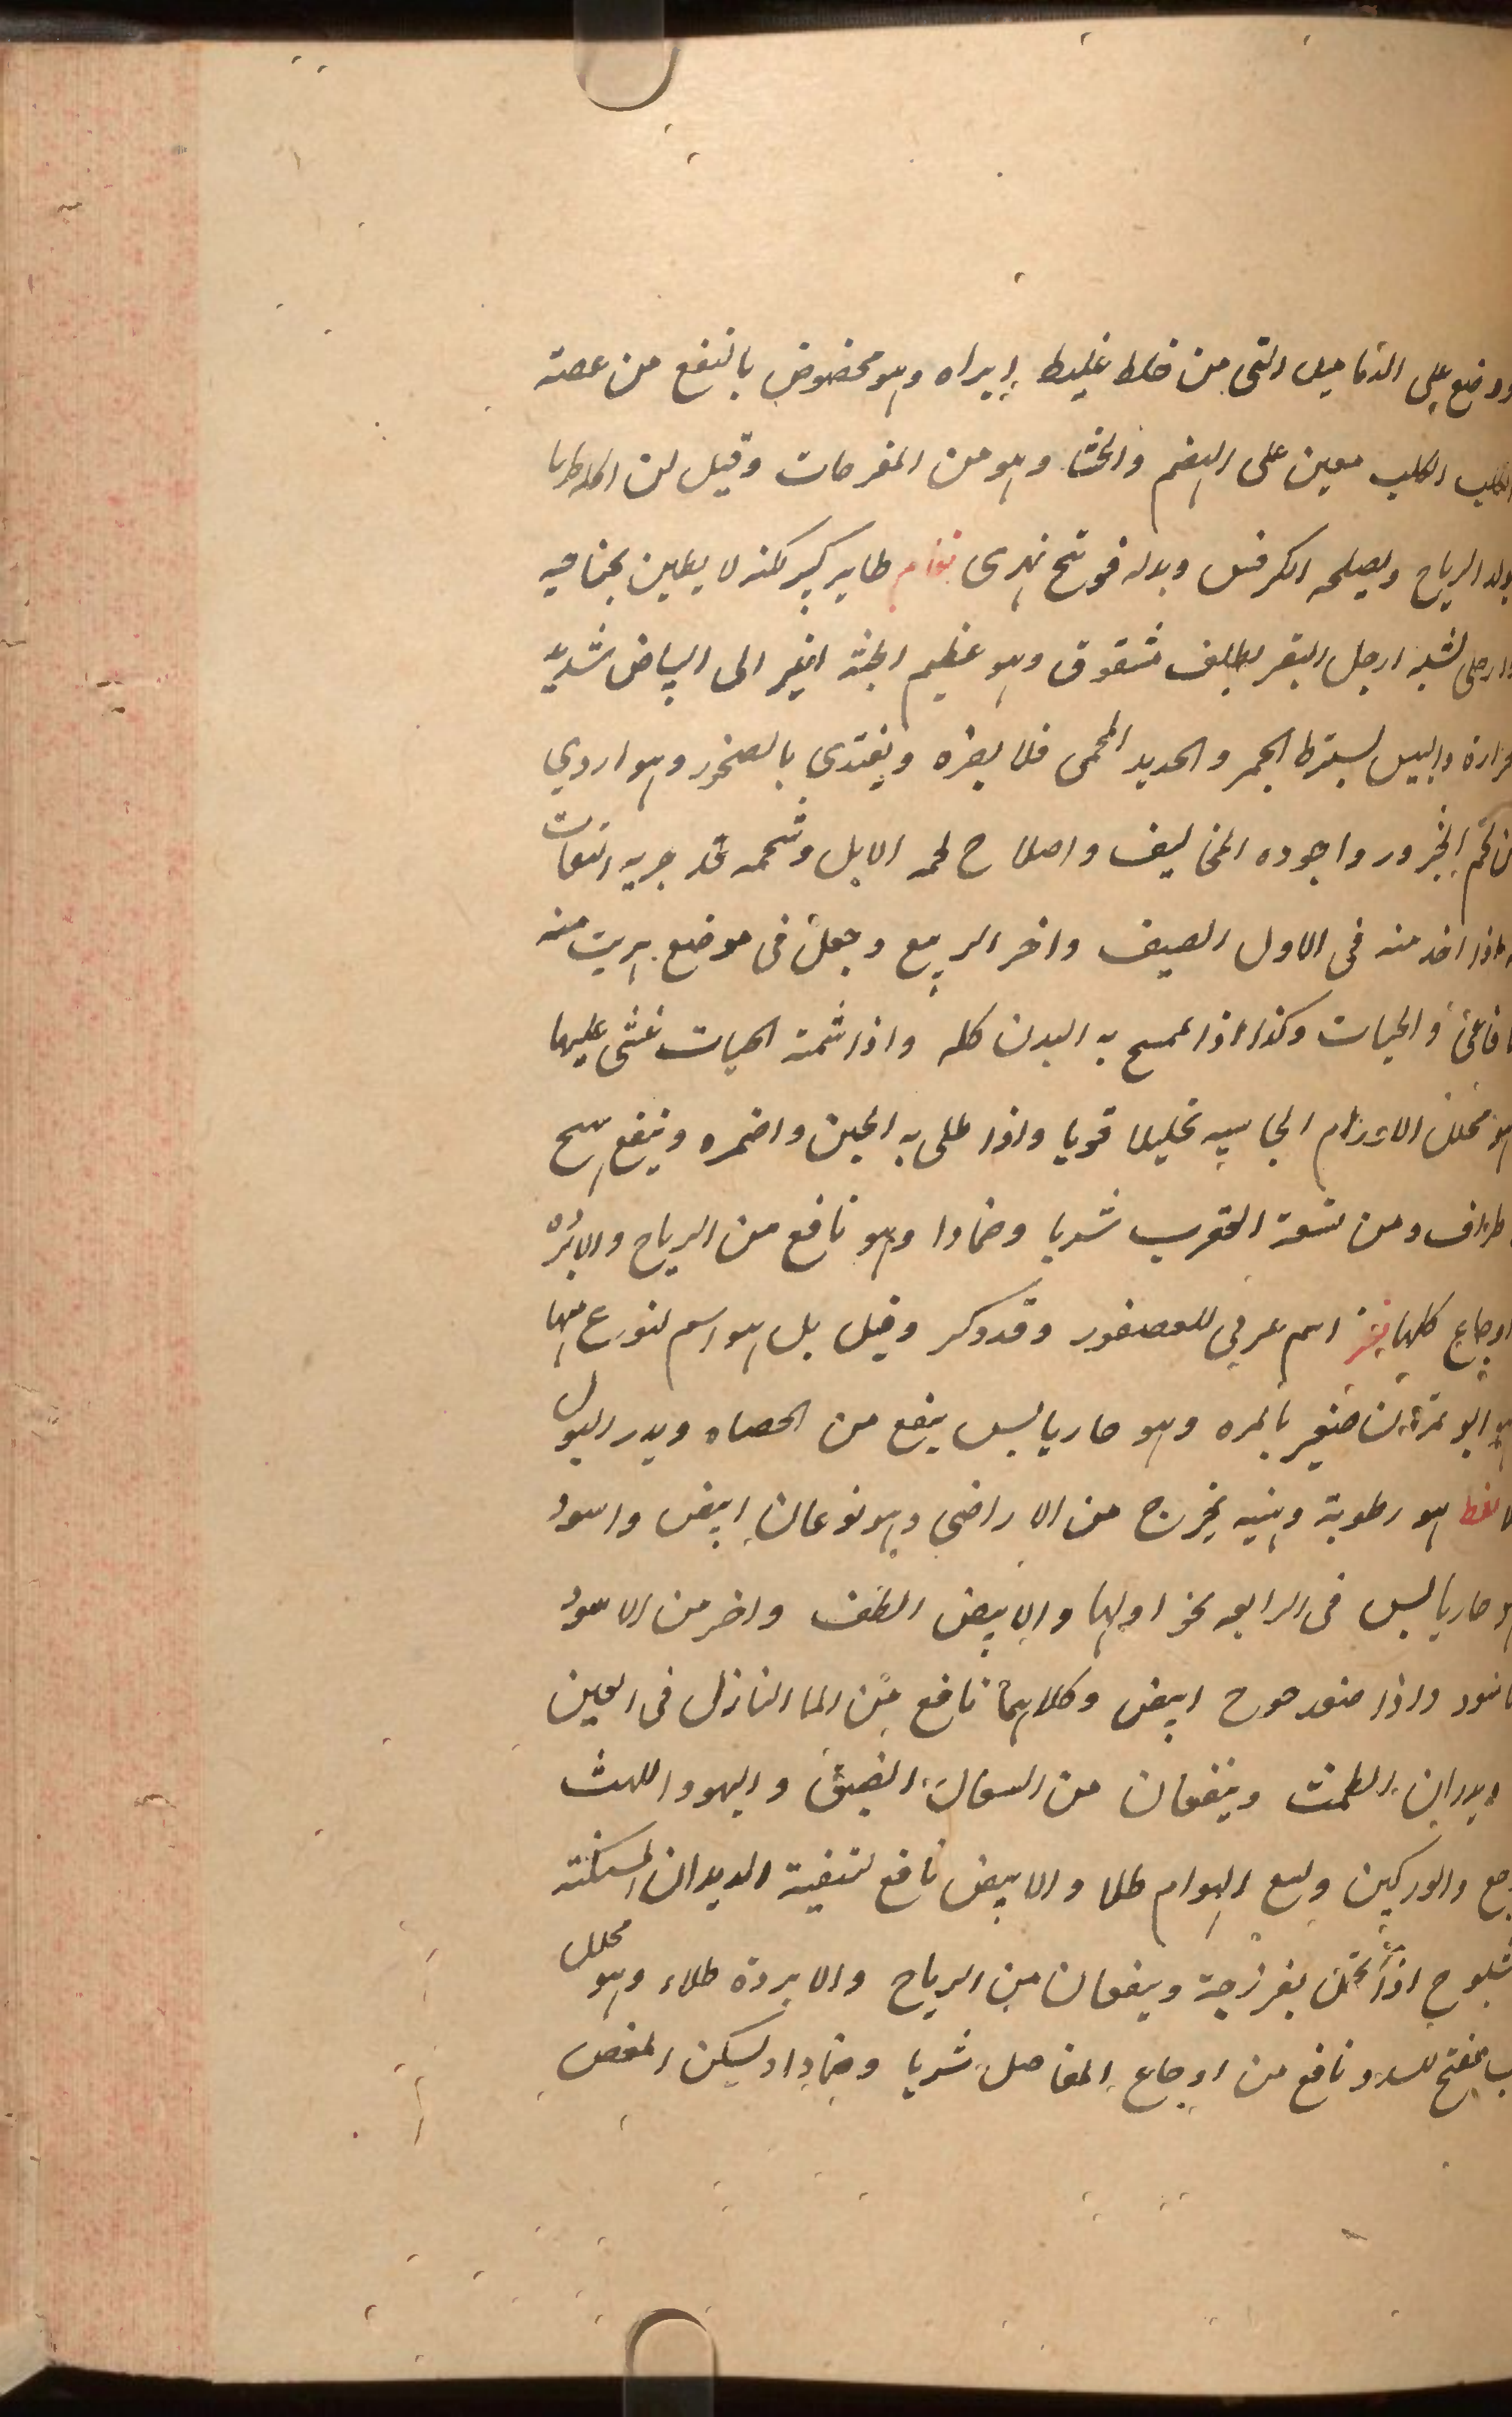 ووضع على الدماميل التى من خلط غليظ ابراه وهو مخصوص بالنفع من عضه
الكلب الكلب معين على الهضم والجشا وهو من المفرحات وقيل ان اكله رطبا
يولد الرياح ويصلحه الكرفس وبدله فوتنج نهرى نعام طاير كبير لكنه لا يطير بجناحيه
وارجل تشبه ارجل البقر بظلف مشقوق وهو عظيم الجثة اغبر الى البياض شديد
حرارة واليبس يسترط الجمر والحديد المحمى فلا يضره ويغتدى بالصخور وهو اردي
من لحم الجزور واجوده المخاليف واصلاح لحمه الابل وشحمه قد جربه الثقات
اذا اخد منه فى الاول الصيف واخر الربيع وجعل فى موضع هربت منه
فاعى والحيات وكذا اذا مسح به البدن كله واذا شمته الحيات غشى عليها
هو محلل الاورام الجاسيه تحليلا قويا واذا طلى به الجبن واضمره وينفع
طراف ومن لسعة العقرب شربا وضمادا وهو نافع من الرياح والابرده
اوجاع كلها اسم عربي للعصفور وقد ذكر وقيل بل هو اسم لنوع منها
صغير بالمره وهو حار يابس ينفع من الحصاه ويدر البول
نفط هو رطوبة دهنيه يخرج من الاراضى وهو نوعان ابيض واسود
هو حار يابس فى الرابعه نحو اولها والابيض الطف واخر من الاسود
واذا صعد خرج ابيض وكلاهما نافع من الما النازل فى العين
ويدران الطمث وينفعان من السعال الضيق والبهر واللهث
وجع والوركين ولسع الهوام طلا والابيض نافع لتنقية الديدان المسكنة
اذا تحمل بفرزجة وينفعان من الرياح والابردة طلاء وهو محلل
مفتح للسدد نافع من اوجاع المفاصل شربا وضمادا ويسكن المغص